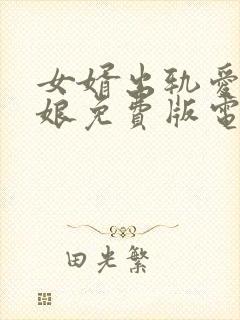 女婿出轨愛
娘免費版電
田光繁